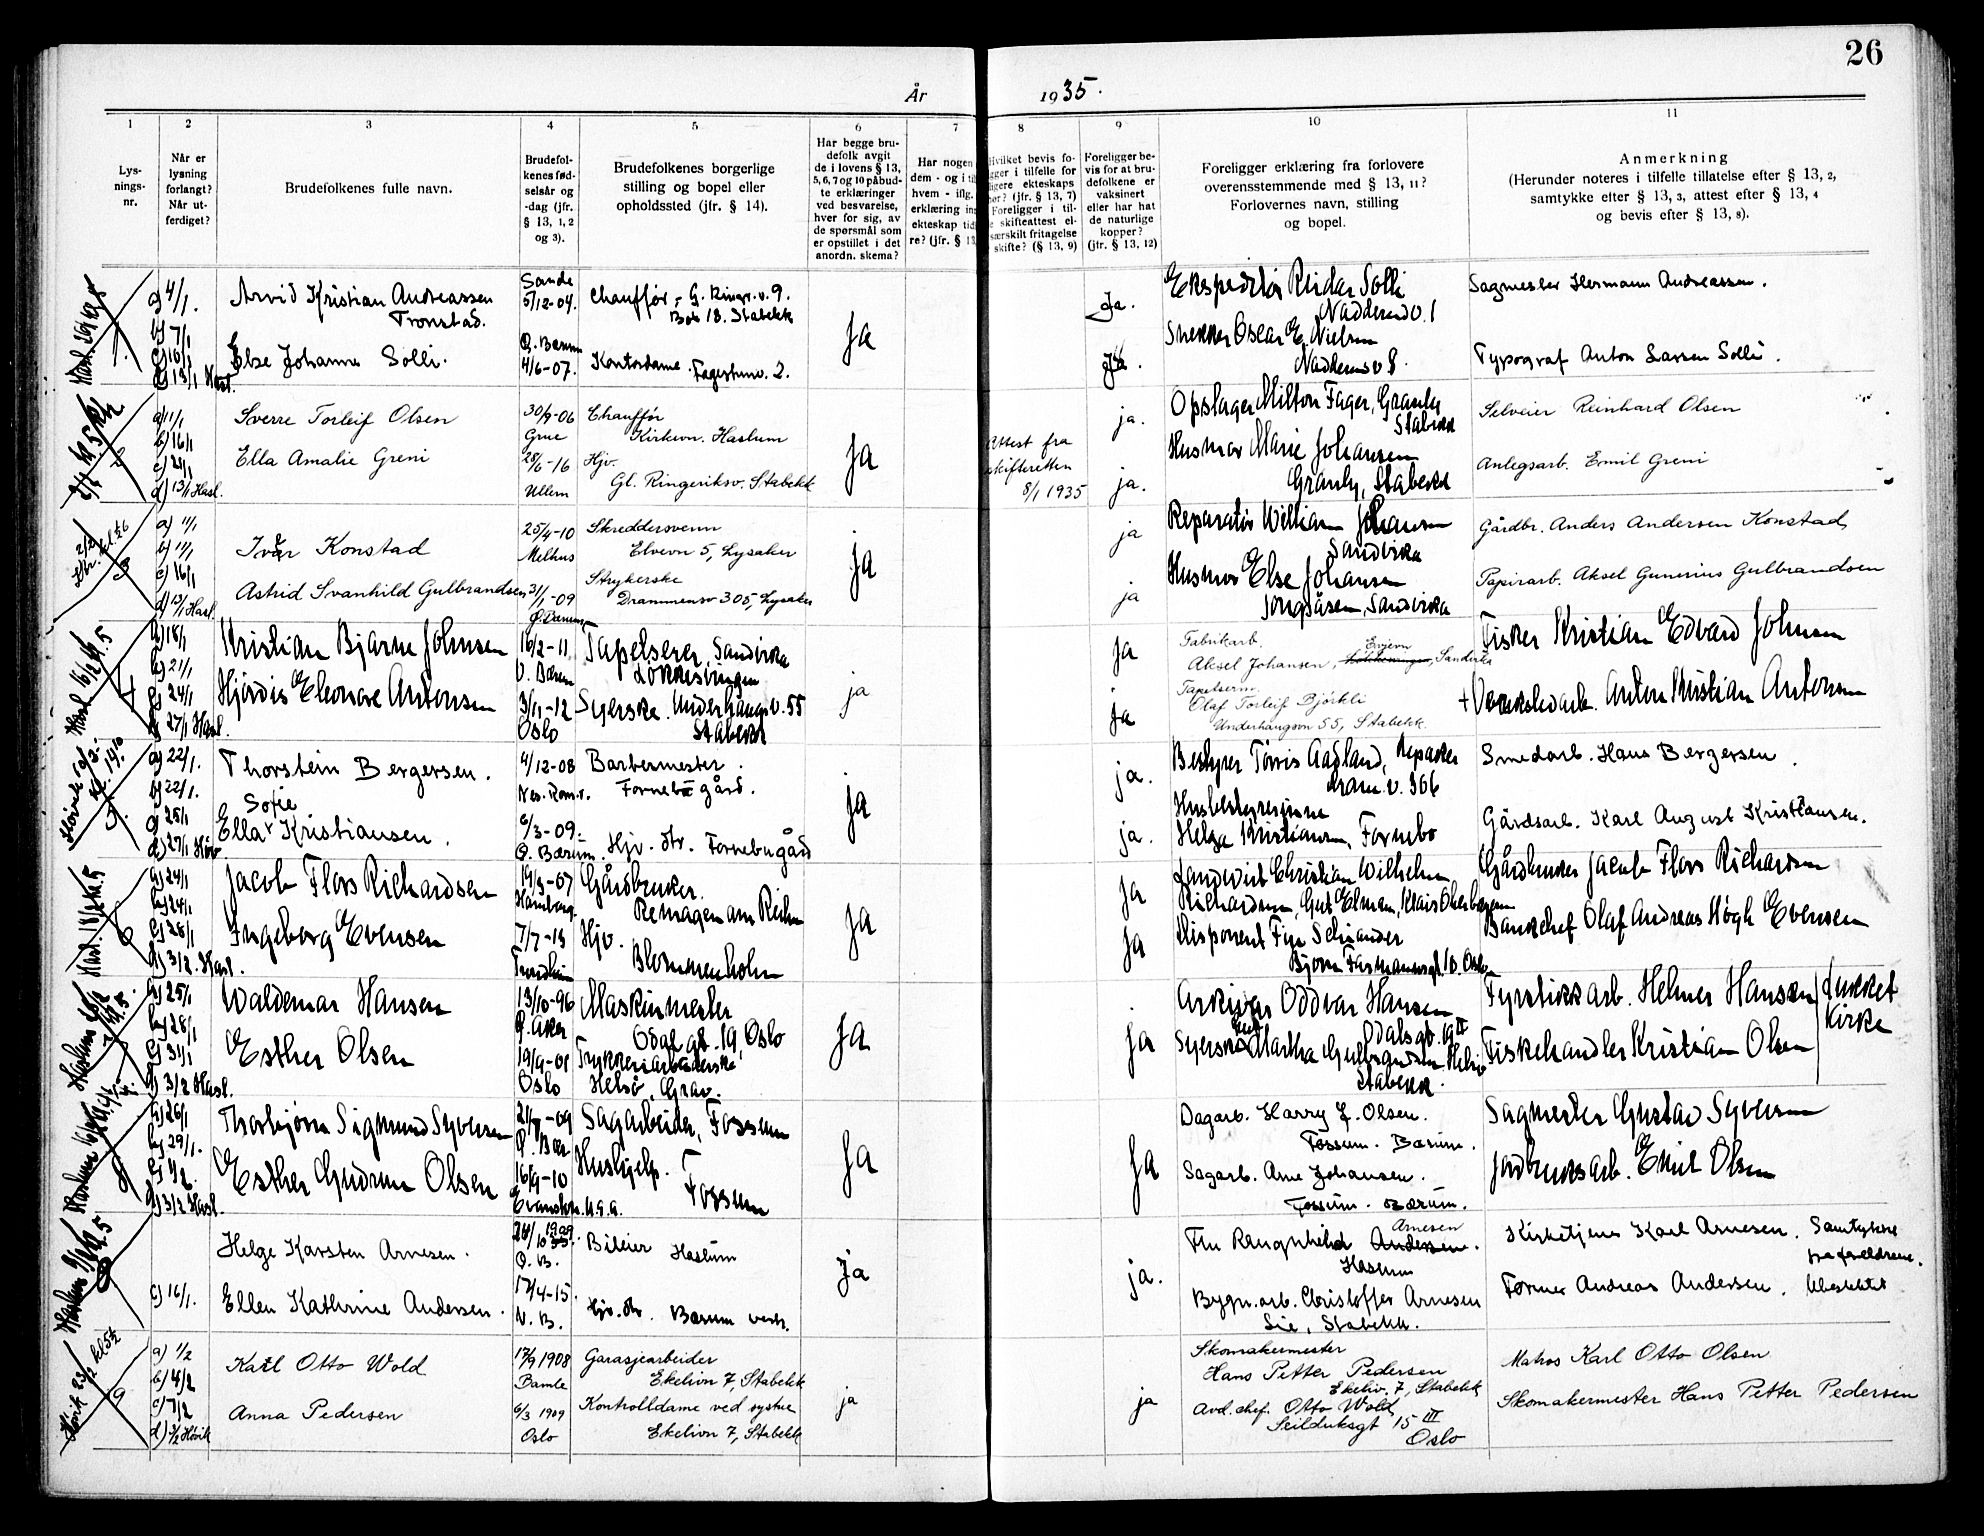 26
År 1935.
1 2 3 4 5 6 7 8 9 10 11
Lys-
nings-
nr.
Når er
lysning
forlangt?
Når ut-
ferdiget?
Brudefolkenes fulle navn.
Brudefol-
kenes fød-
selsår og
-dag (jfr.
§ 13, 1, 2
og 3).
Brudefolkenes borgerlige
stilling og bopel eller
opholdssted (jfr. § 14).
Har begge bru-
defolk avgit
de i lovens § 13,
5, 6, 7 og 10 påbud-
te erklæringer
ved besvarelse,
hver for sig, av
de spørsmål som
er opstillet i det
anordn. skema?
Har nogen
dem - og i
hvem - iflg.
erklæring in
ekteskap tid
re? (jfr. § 13
Hvilket bevis fo-
gger i tilfelle for
ligere ekteskaps
hør? (jfr. § 13, 7)
Foreligger i til-
e skifteattest el-
særskilt fritagelse
skifte? (§ 13, 9)
Foreligger be-
vis for at bru-
defolkene er
vaksinert
eller har hat
de naturlige
kopper?
(jfr. § 13, 12)
Foreligger erklæring fra forlovere
overensstemmende med § 13, 11?
Forlovernes navn, stilling
og bopel.
Anmerkning
(Herunder noteres i tilfelle tillatelse efter § 13, 2,
samtykke efter § 13, 3, attest efter § 13, 4
og bevis efter § 13, 8).
1.
a) 4/1.
b) 7/1
c) 16/1
d) 13/1 Hasl.
Arvid Kristian Andreassen
Tronstad.
Else Johanne Solli.
Sande
5/12-04.
Ø. Bærum
4/6-07.
Chauffør, G. Ringr.v. 9.
Box 18. Stabekk
Kontordame. Fagertunv. 2.
Ja
Ja.
Ja.
Ekspeditør Reidar Solli
Nadderudv. 1
Snekker Oscar E. Nielsen
Nadderudv 8.
Sagmester Hermann Andreassen.
Typograf Anton Larsen Solli.
2
a) 11/1
b) 16/1
c) 21/1
d) 13/1 Hasl.
Sverre Torleif Olsen
Ella Amalie Greni
30/9-06
Grue
28/6-16
Ullern
Chauffør
Kirkevn. Haslum
Hjv.
Gl. Ringeriksv. Stabekk
Ja
Attest fra
skifteretten
8/1 1935
ja.
ja.
Opslager Milton Fager, Granly
Stabekk
Husmor Marie Johansen
Granly, Stabekk
Selveier Reinhard Olsen
Anlegsarb. Emil Greni
3
a) 11/1
b) 11/1
c) 16/1
d) 13/1 Hasl.
Ivar Konstad
Astrid Svanhild Gulbrandsen
25/4-10
Melhus
31/1-09
Ø. Bærum
Skreddersvenn
Elvevn 5, Lysaker
Strykerske
Drammensv 305, Lysaker
ja
ja
ja
Reparatør William Johansen
Sandvika
Husmor Else Johansen
Jongsåsen, Sandvika
Gårdbr. Anders Andersen Konstad,
Papirarb. Aksel Gunerius Gulbrandsen
4
a) 18/1
b) 21/1
c) 24/1
d) 27/1 Hasl.
Kristian Bjarne Johnsen
Hjørdis Eleonore Antonsen
16/2-11
V. Bærum
3/11-12
Oslo
Tapetserer, Sandvika
Løkkesvingen
Syerske. Underhaugsv. 55
Stabekk
ja
ja
ja
Fabrikarb.
Aksel Johansen, Engervn, Sandvika
Tapetserm.
Olaf Torleif Bjørkli
Underhaugsvn 55, Stabekk.
Fisker Kristian Edvard Johnsen
+ Verkstedarb. Anton Kristian Antonsen
5
a) 22/1.
b) 22/1.
c) 25/1
d) 27/1 Høv.
Thorstein Bergersen.
Sofie
Ella Kristiansen.
4/12-08
Nes. Rom.r.
6/3-09.
Ø. Bærum.
Barbermester.
Fornebu gård.
Hjv. dtr. Fornebu gård
ja
ja.
ja.
Bestyrer Tørris Aadland,
dram.v. 306
Husbestyrerinne
Helga Kristiansen, Fornebo
Smedarb. Hans Bergersen.
Gårdsarb. Karl August Kristiansen.
6
a) 24/1
b) 24/1
c) 28/1
d) 3/2. Hasl.
Jacob Flors Richardsen
Ingeborg Evensen
19/3-07
Hamborg
7/7-13
Trondheim
Gårdbruker.
Remagen am Rhein
Hjv.
Blommenholm
Ja
ja
ja
Landwirt Christian Wilhelm
Disponent Finn Schiander
Bjørn Farmannsgt. 10. Oslo
Gårdbruker Jacob Flors Richardsen
Bankchef Olaf Andreas Høgh Evensen
7
a) 25/1
b) 28/1
c) 31/1
d) 3/2 Hasl.
Waldemar Hansen
Esther Olsen
13/10-96
Ø. Aker
19/9-01
Oslo
Maskinmester
Odalsgt. 19, Oslo
Trykkeriarbeiderske
Helsö, Grav.
Ja
ja
Arkivar Oddvar Hansen
Odalsgt. 19 II
Syerske Martha Gulbrandsen
Stabekk.
Fyrstikkarb. Helmer Hansen
Fiskehandler Kristian Olsen
Lukket
Kirke
8
a) 26/1
b) 29/1.
c) 1/2.
d) 3/2 Hasl.
Thorbjørn Sigmund Syversen
Esther Gudrun Olsen
21/7-09
Ø. Bær
16/9-10
Evanston. U.S.A.
Sagarbeider, Fossum
Hushjelp.
Fossum
Ja
Ja
Dagarb. Harry J. Olsen.
Fossum. Bærum.
Sagarb. Arne Johansen.
Fossum. Bærum.
Sagmester Gustav Syversen
Jordbruksarb. Emil Olsen
c) 16/1.
Helge Karsten Arnesen.
Ellen Kathrine Andersen.
Ø. B.
17/4-15.
V. B.
Bileier Haslum
Hjv. dtr. Bærum verk.
Ja
ja.
Fru Rangnhild Andersen. Arnesen
Haslum
Bygn.arb. Christoffer Arnesen
Lie, Stabekk.
Kirketjener Karl Arnesen. Samtykke
fra foreldrene.
Former Andreas Andersen. Ubeslektet
9
a) 1/2
b) 4/2
c) 7/2
d) 3/2 Høvik
Karl Otto Wold
Anna Pedersen
17/9 1908
Bamle
6/3 1909
Oslo
Garasjearbeider
Ekelivn 7, Stabekk
Kontrolldame ved systue
Ekelivn 7, Stabekk
ja
ja
Skomakermester
Hans Petter Pedersen
Ekeliv. 7, Stabekk
Avd. chef. Otto Wold
Seilduksgt 15 III
Oslo
Matros Karl Otto Olsen
Skomakermester Hans Petter Pedersen